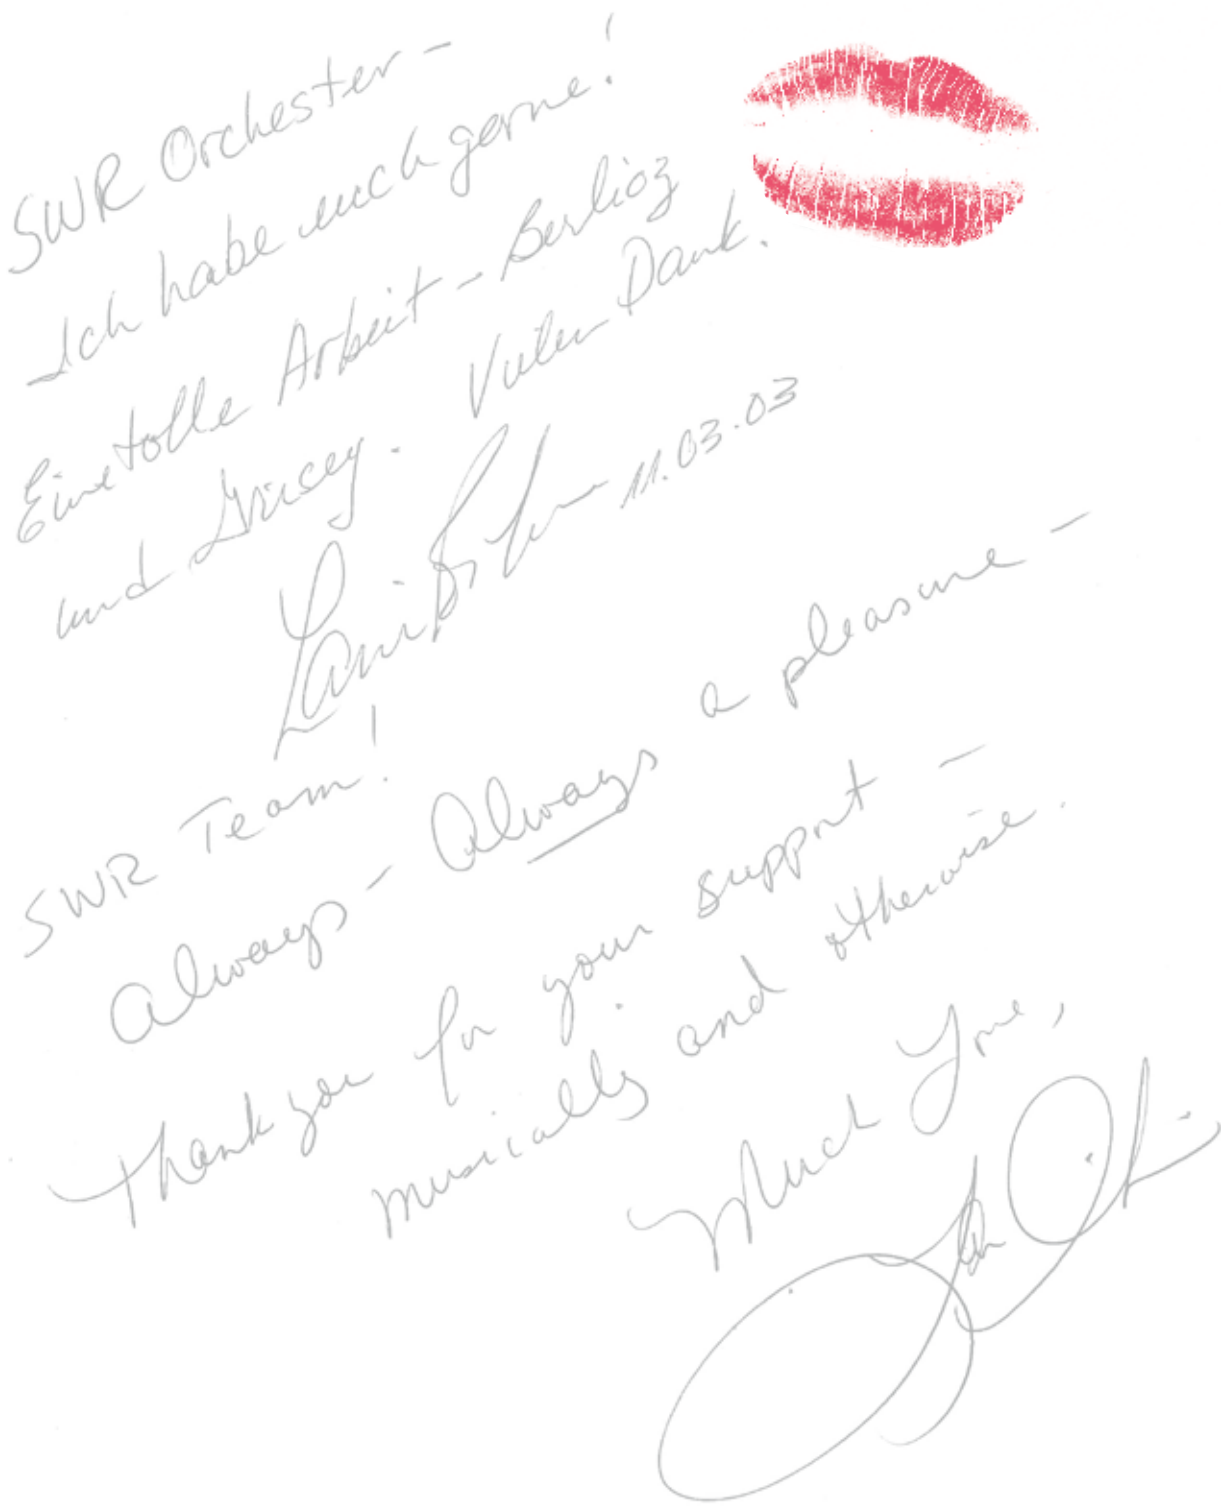 SWR Orchester -
Ich habe euch gerne!
Eine tolle Arbeit - Berlioz
und . Vielen Dank.
11.03.03
SWR Team!
Always - Always a pleasure -
Thank you for your support -
musically and otherwise.
Much Love,